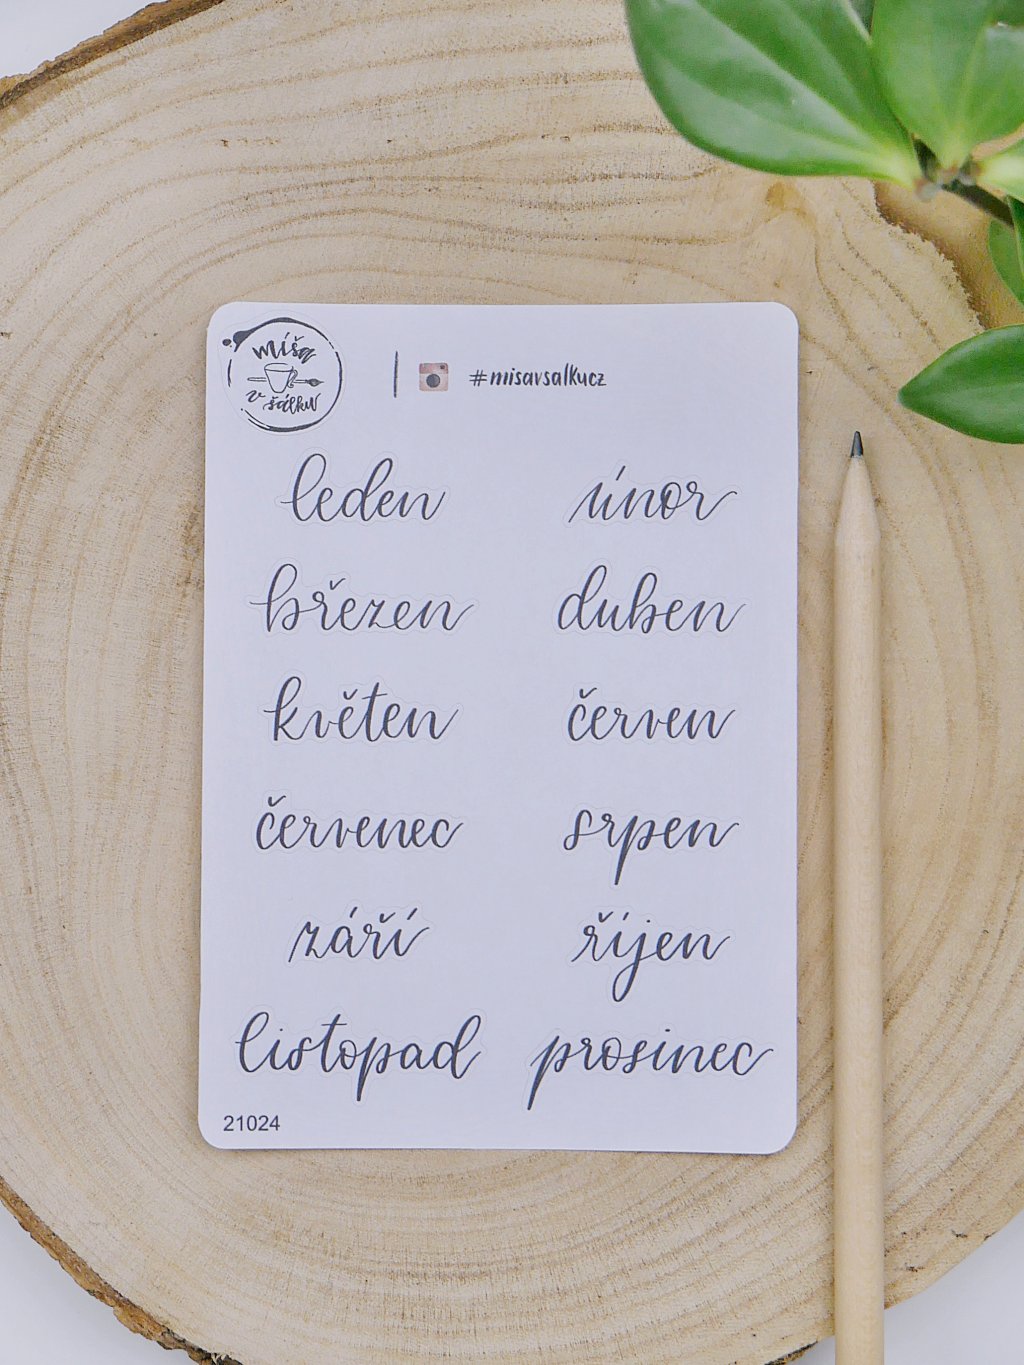 míša
v šálku
#misavsalkucz
leden únor
březen duben
květen červen
červenec srpen
září říjen
listopad prosinec
21024